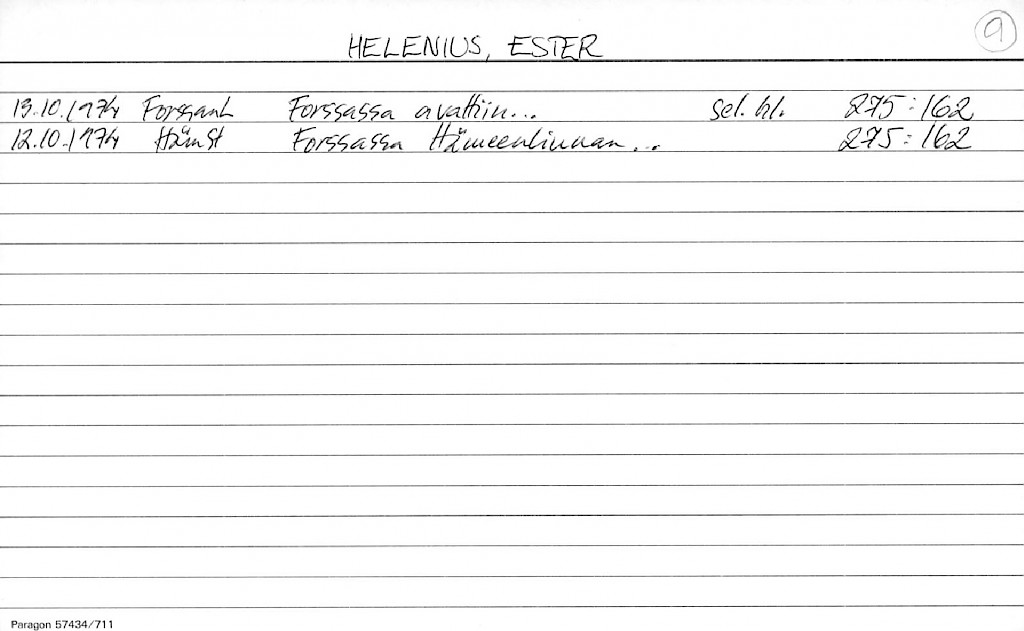 9
HELENIUS, ESTER
13.10.1974 ForssanL Forssassa avattiin... sel. bl. 275:162
12.10.1974 HämSt Forssassa Hämeenlinnan... 275:162
Paragon 57434/711